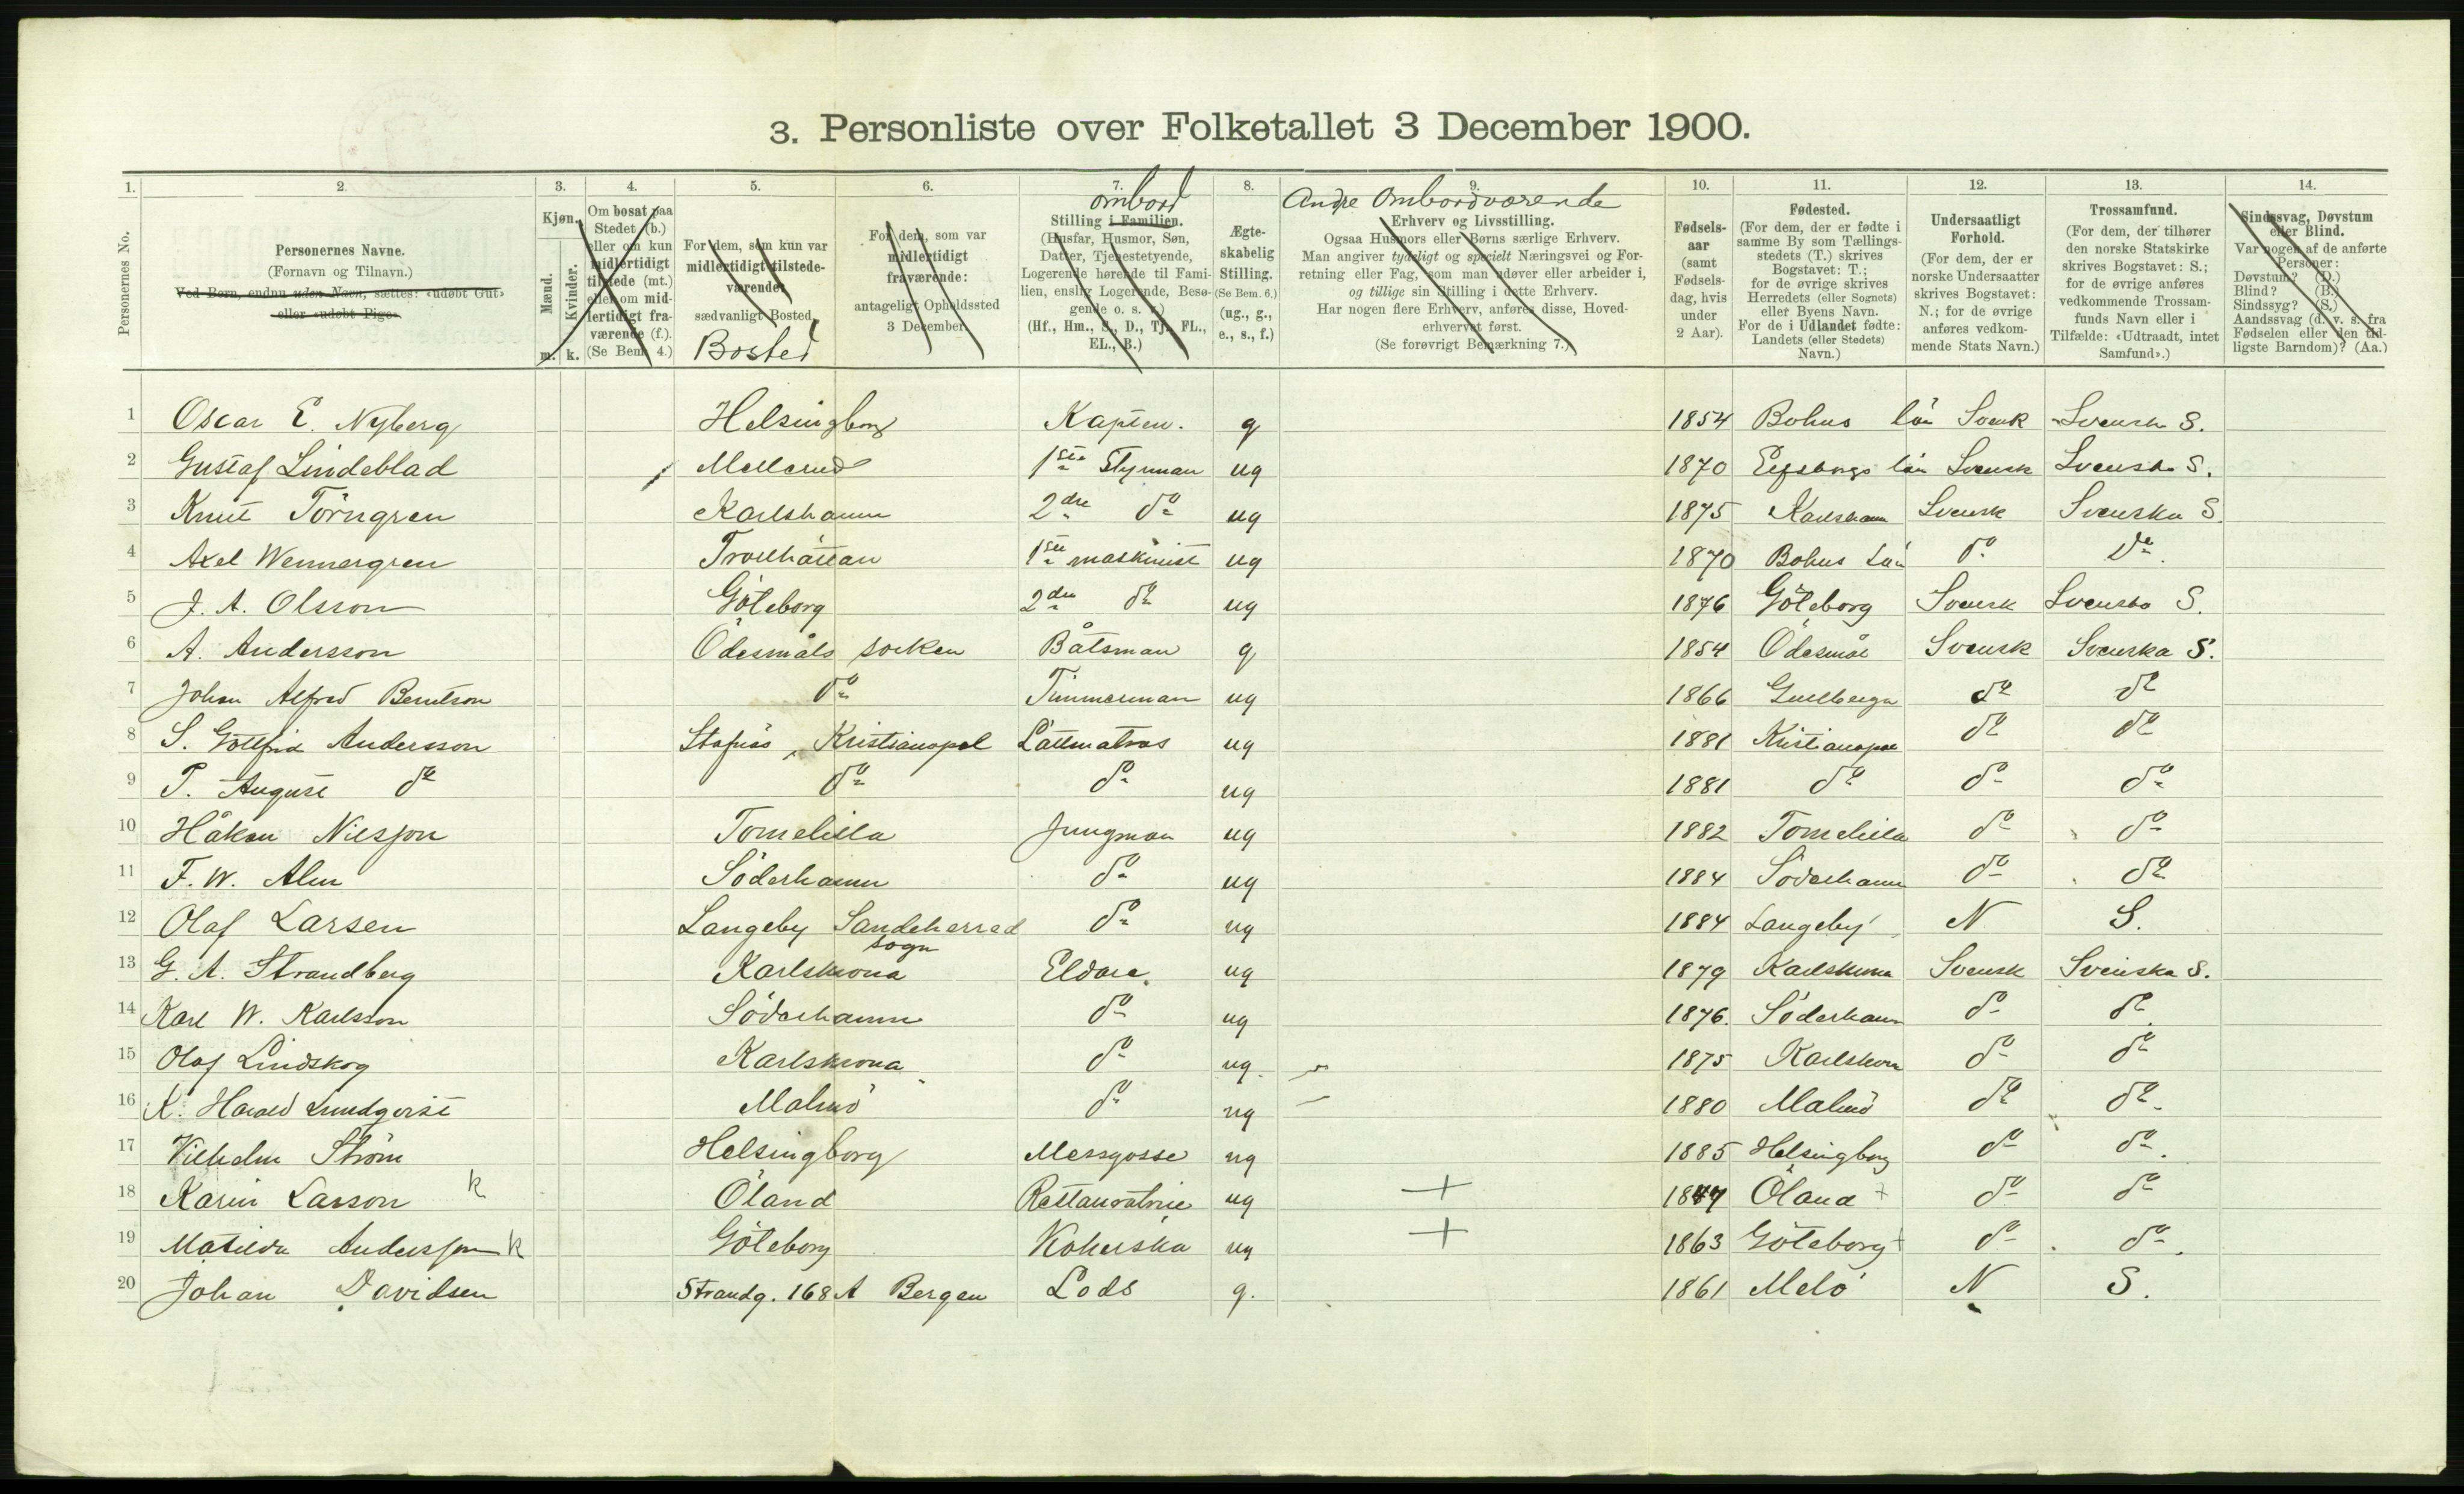 3. Personliste over Folketallet 3 December 1900.
1. 2. 3. 4. 5. 6. 7. 8. 9. 10. 11. 12. 13. 14.
Personernes No.
Personernes Navne.
(Fornavn og Tilnavn.)
Ved Børn, endnu uden Navn, sættes: «udøbt Gut»
eller «udøbt Pige».
Kjøn.
Mænd.
Kvinder.
m. k.
Om bosat paa
Stedet (b.)
eller om kun
midlertidigt
tilstede (mt.)
eller om mid-
lertidigt fra-
værende (f.).
(Se Bem. 4.)
For dem, som kun var
midlertidigt tilstede-
værende:
sædvanligt Bosted.
Bosted
For dem, som var
midlertidigt
fraværende:
antageligt Opholdssted
3 December.
ombord
Stilling i Familien.
(Husfar, Husmor, Søn,
Datter, Tjenestetyende,
Logerende hørende til Fami-
lien, enslig Logerende, Besø-
gende o. s. v.)
(Hf., Hm., S., D., Tj., FL.,
EL., B.)
Ægte-
skabelig
Stilling.
(Se Bem. 6.)
(ug., g.,
e., s., f.)
Andre Ombordværende
Erhverv og Livsstilling.
Ogsaa Husmors eller Børns særlige Erhverv.
Man angiver tydeligt og specielt Næringsvei og For-
retning eller Fag, som man udøver eller arbeider i,
og tillige sin Stilling i dette Erhverv.
Har nogen flere Erhverv, anføres disse, Hoved-
erhvervet først.
(Se forøvrigt Bemærkning 7.)
Fødsels-
aar
(samt
Fødsels-
dag, hvis
under
2 Aar).
Fødested.
(For dem, der er fødte i
samme By som Tællings-
stedets (T.) skrives
Bogstavet: T.;
for de øvrige skrives
Herredets (eller Sognets)
eller Byens Navn.
For de i Udlandet fødte:
Landets (eller Stedets)
Navn.)
Undersaatligt
Forhold.
(For dem, der er
norske Undersaatter
skrives Bogstavet:
N.; for de øvrige
anføres vedkom-
mende Stats Navn.)
Trossamfund.
(For dem, der tilhører
den norske Statskirke
skrives Bogstavet: S.;
for de øvrige anføres
vedkommende Trossam-
funds Navn eller i
Tilfælde: «Udtraadt, intet
Samfund».)
Sindssvag, Døvstum
eller Blind.
Var nogen af de anførte
Personer:
Døvstum? (D.)
Blind? (B.)
Sindssyg? (S.)
Aandssvag (d. v. s. fra
Fødselen eller den tid-
ligste Barndom)? (Aa.)
1 Oscar E. Nyberg Helsingborg Kapten. g 1854 Bohus län Svensk Svenska S.
2 Gustaf Lindeblad Mellerud 1sta Styrman ug 1870 Elfsborgs län Svensk Svenska S.
3 Knut Törngren Karlshamn 2dre do ug 1875 Karlshamn Svensk Svenska S.
4 Axel Wennergren Trollhättan 1ste maskinist ug 1870 Bohus Län do do
5 J. A. Olsson Göteborg 2dre do ug 1876 Göteborg Svensk Svenska S.
6 A. Andersson Ödesmåls socken Båtsman g 1854 Ödesmål Svensk Svenska S.
7 Johan Alfred Berntson do Timmerman ug 1866 do do
8 S. Gottfrid Andersson Kristianopel Lättmatros ug 1881 Kristianopel do do
9 P. August do do do ug 1881 do do do
10 Håkan Nilsson Tomelilla Jungman ug 1882 Tomelilla do do
11 F. W. Alm Söderhamn do ug 1884 Söderhamn do do
12 Olaf Larsen Langeby Sandeherred do ug 1884 Langeby N S.
sogn
13 G. A. Strandberg Karlskrona Eldare. ug 1879 Karlskrona Svensk Svenska S.
14 Karl W. Karlsson Söderhamn do ug 1876. Söderhamn do do
15 Olof Lindskog Karlskrona do ug 1875 Karlskrona do do
16 K. Harald Lundqvist Malmö do ug 1880 Malmö do do
17 Vilhelm Ström Helsingborg Messgosse ug 1885 Helsingborg do do
18 Karin Larson k Öland Restauratrice ug + Öland + do do
19 Matilda Andersson k Göteborg Kokerska ug + 1863 Göteborg + do do
20 Johan Davidsen Strandg. 168 A Bergen Lods g. 1861 Melö N S.